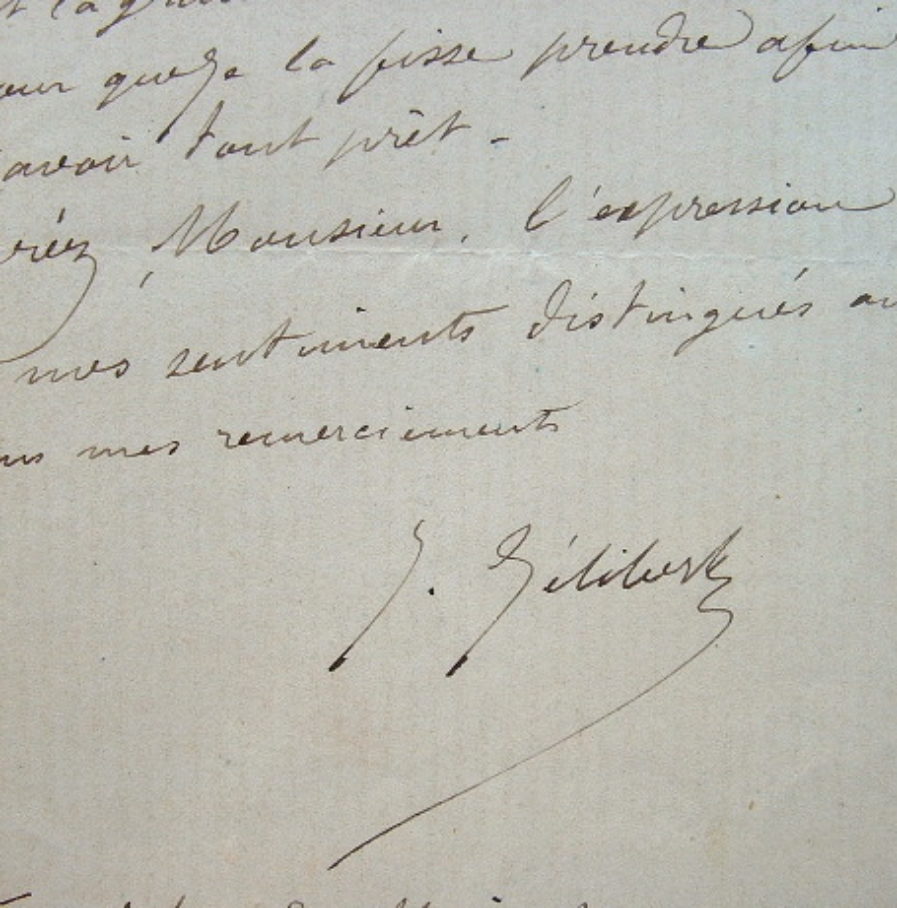 our que je la fisse prendre afin
avoir tout prêt -
réez, Monsieur, l'expression
mes sentiments distingués
mes remerciements
J. Gélibert